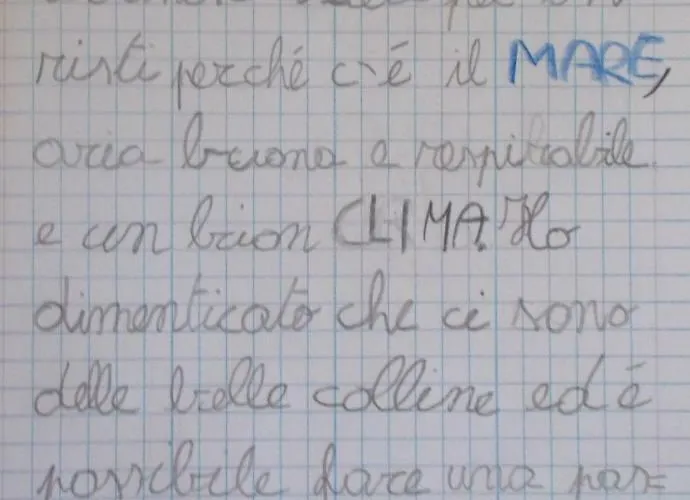 risti perché c'é il MARE,
aria buona e respirabile
e un buon CLIMA. Ho
dimenticato che ci sono
delle belle colline ed é
possibile fare una pas=